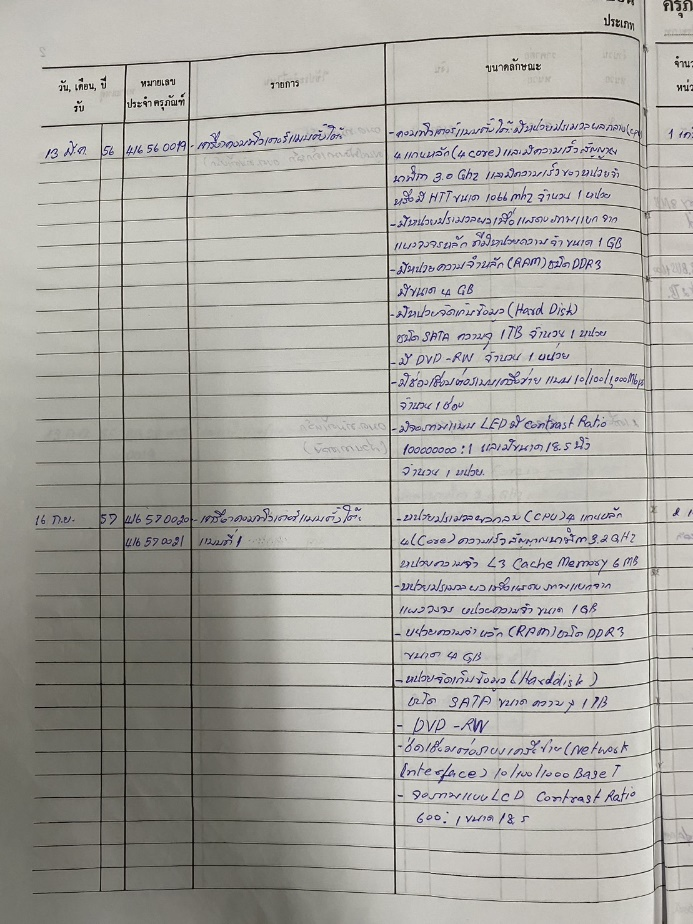 ประเภท
ครุภ
วัน, เดือน, ปี
รับ
หมายเลข
ประจำ ครุภัณฑ์
รายการ
ขนาดลักษณะ
จำนว
หน่
13 มี.ค. 56 416 56 0019 - เครื่องคอมพิวเตอร์แบบตั้งโต๊ะ - คอมพิวเตอร์แบบตั้งโต๊ะ มีหน่วยประมวลผลกลาง (CPU) 1 เค
4 แกนหลัก (4 core) และมีความเร็วสัญญาณ
นาฬิกา 3.0 Ghz และมีความเร็วของหน่วยจำ
หรือมี HTT ขนาด 1066 mhz จำนวน 1 หน่วย
- มีหน่วยประมวลผลเพื่อแสดงภาพแยก จาก
แผงวงจรหลัก ที่มีหน่วยความจำ ขนาด 1 GB
- มีหน่วยความจำหลัก (RAM) ชนิด DDR3
มีขนาด 4 GB
- มีหน่วยจัดเก็บข้อมูล (Hard Disk)
ชนิด SATA ความจุ 1TB จำนวน 1 หน่วย
- มี DVD-RW จำนวน 1 หน่วย
- มีช่องเชื่อมต่อระบบเครือข่าย แบบ 10/100/1,000 Mbps
จำนวน 1 ช่อง
- มีจอภาพแบบ LED มี Contrast Ratio
100000000 : 1 และมีขนาด 18.5 นิ้ว
จำนวน 1 หน่วย.
16 ก.ย. 57 416 57 0020 - เครื่องคอมพิวเตอร์แบบตั้งโต๊ะ - หน่วยประมวลผลกลาง (CPU) 4 แกนหลัก 2
416 57 0021 แบบที่ 1 4 (Core) ความเร็วสัญญาณนาฬิกา 3.2 GHZ
หน่วยความจำ L3 Cache Memory 6 MB
- หน่วยประมวลผลเพื่อแสดงภาพแยกจาก
แผงวงจร หน่วยความจำ ขนาด 1 GB
- หน่วยความจำหลัก (RAM) ชนิด DDR3
ขนาด 4 GB
- หน่วยจัดเก็บข้อมูล (Harddisk)
ชนิด SATA ขนาดความจุ 1 TB
- DVD-RW
- ช่องเชื่อมต่อระบบเครือข่าย (Network
Interface) 10/100/1000 Base T
- จอภาพแบบ LCD Contrast Ratio
600 : 1 ขนาด 18.5